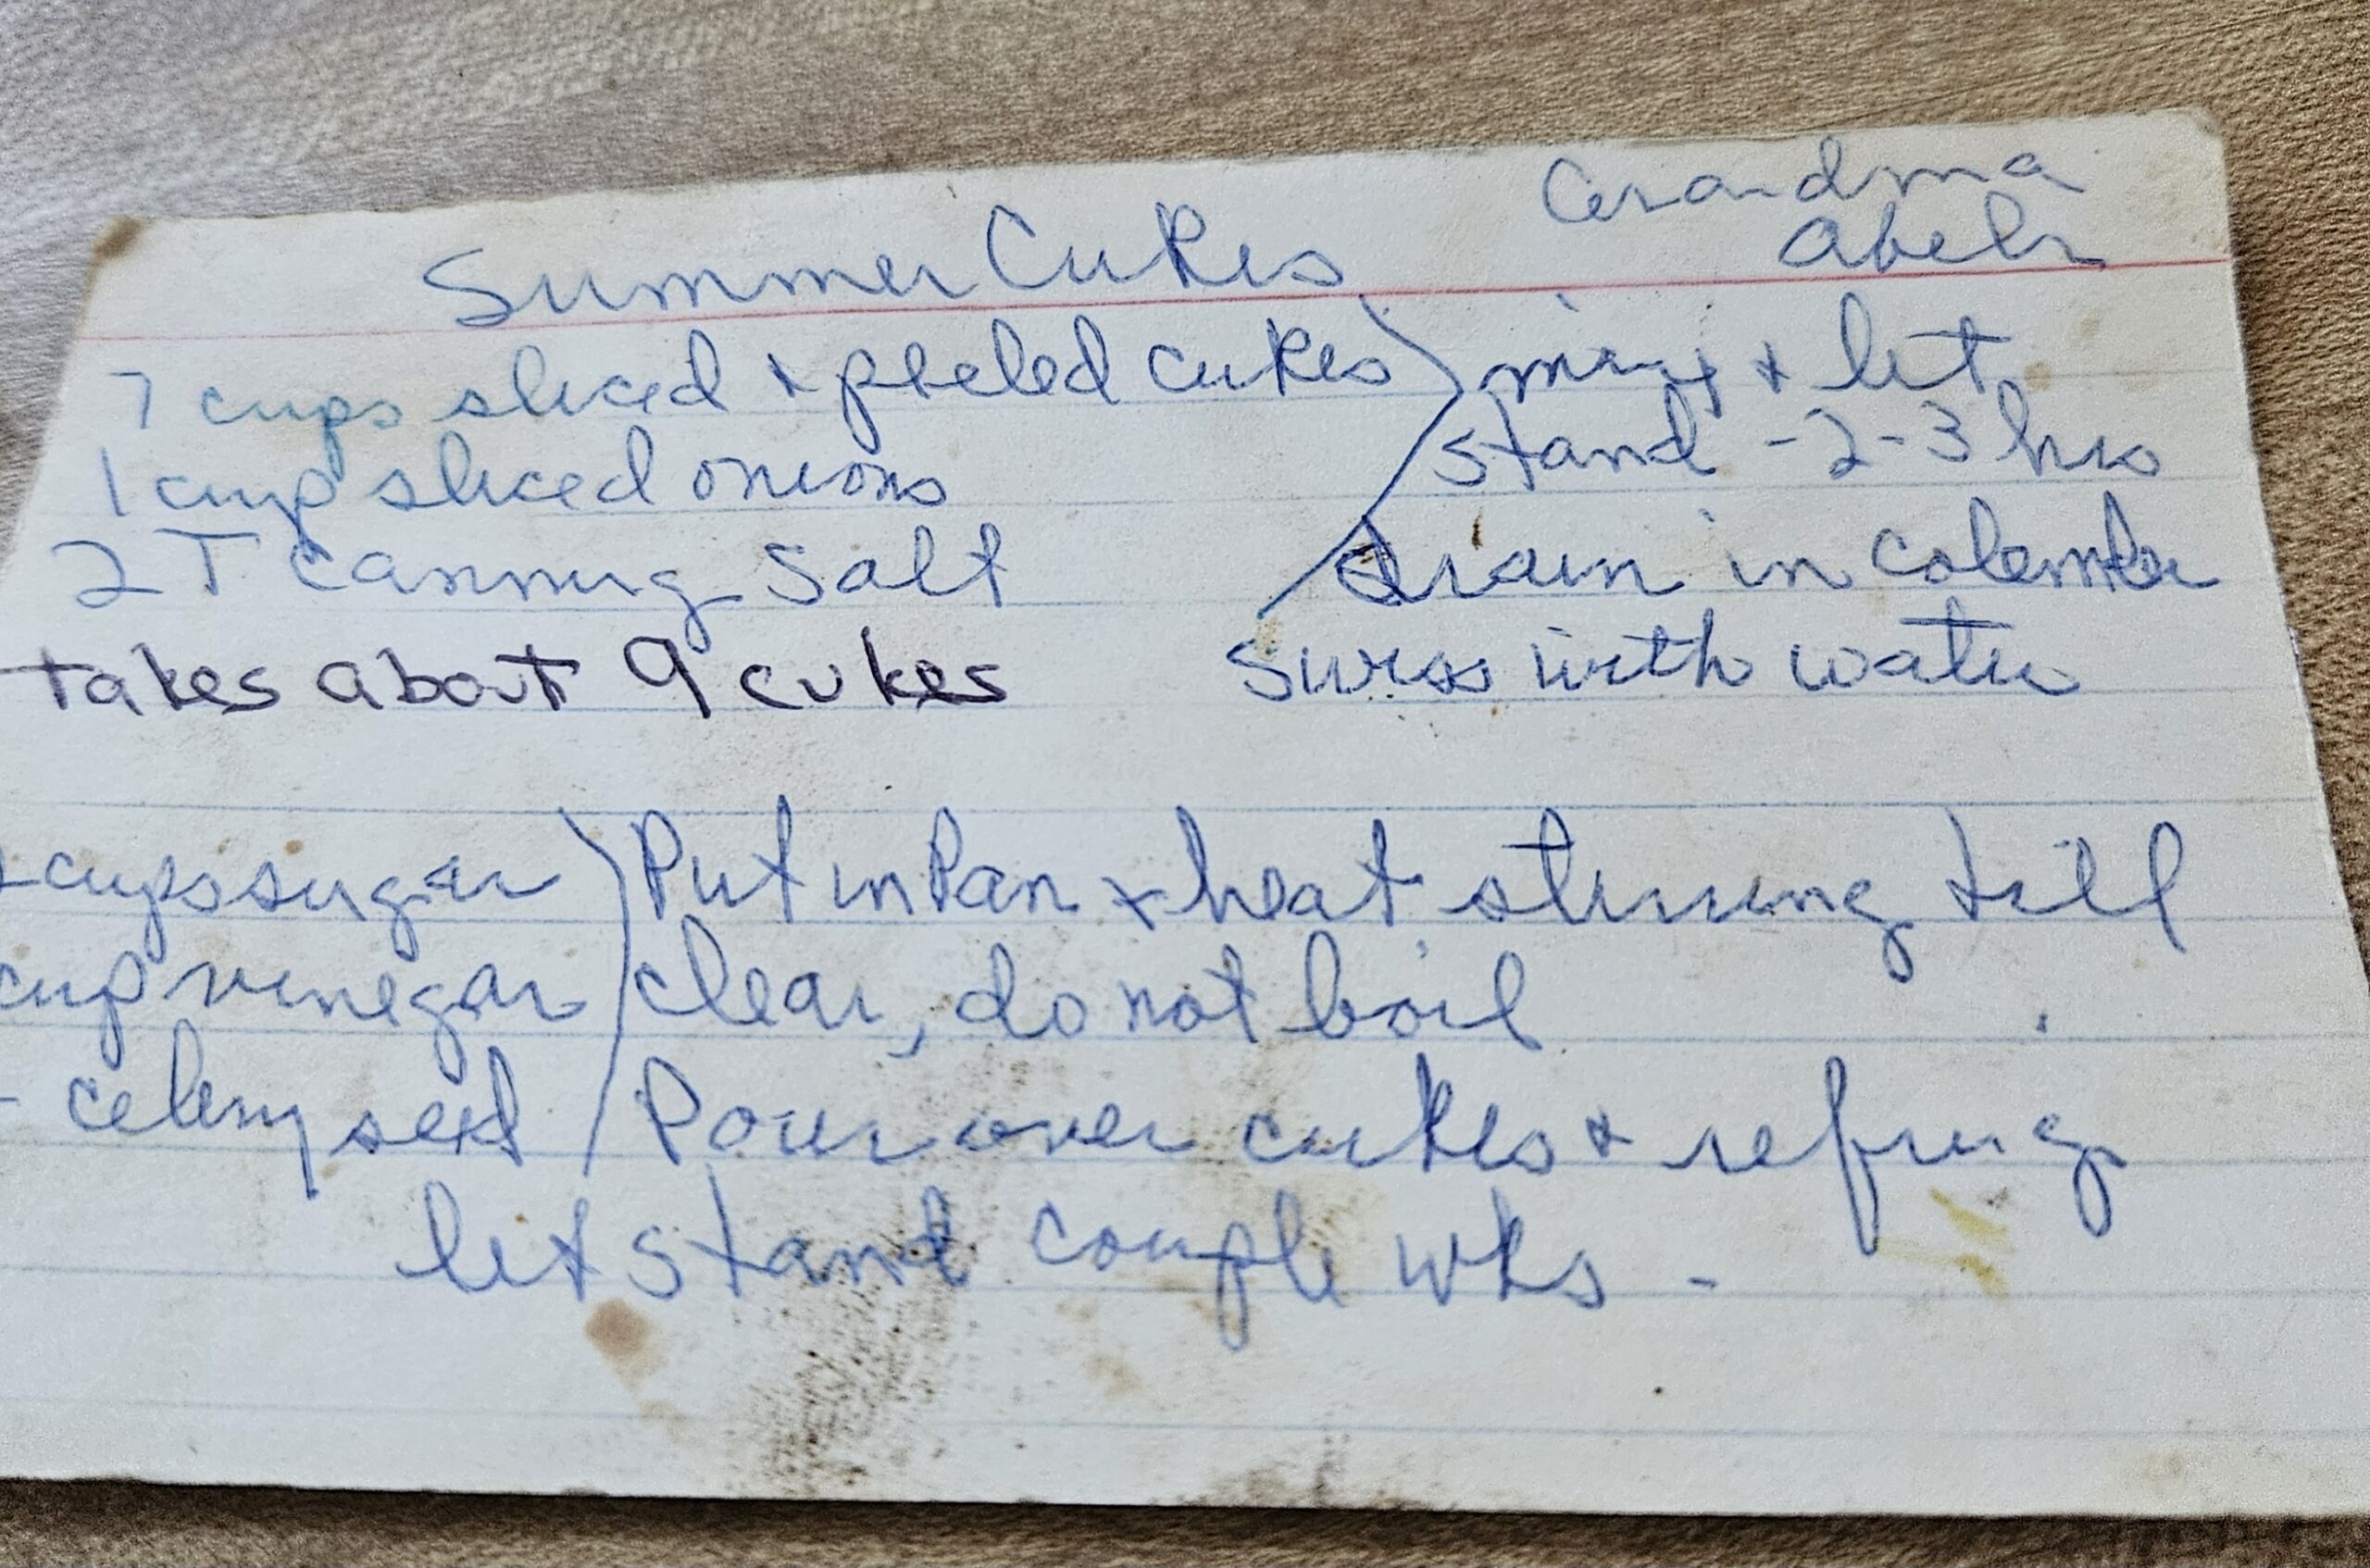 Grandma
Abeln
Summer Cukes
7 cups sliced & peeled cukes
1 cup sliced onions
2 T canning salt
takes about 9 cukes
mix & let
stand - 2-3 hrs
drain in
with water
cups sugar
cup vinegar
- celery seed
Put in Pan & heat stirring till
clear, do not boil
Pour over cukes & refrig
let stand couple wks -